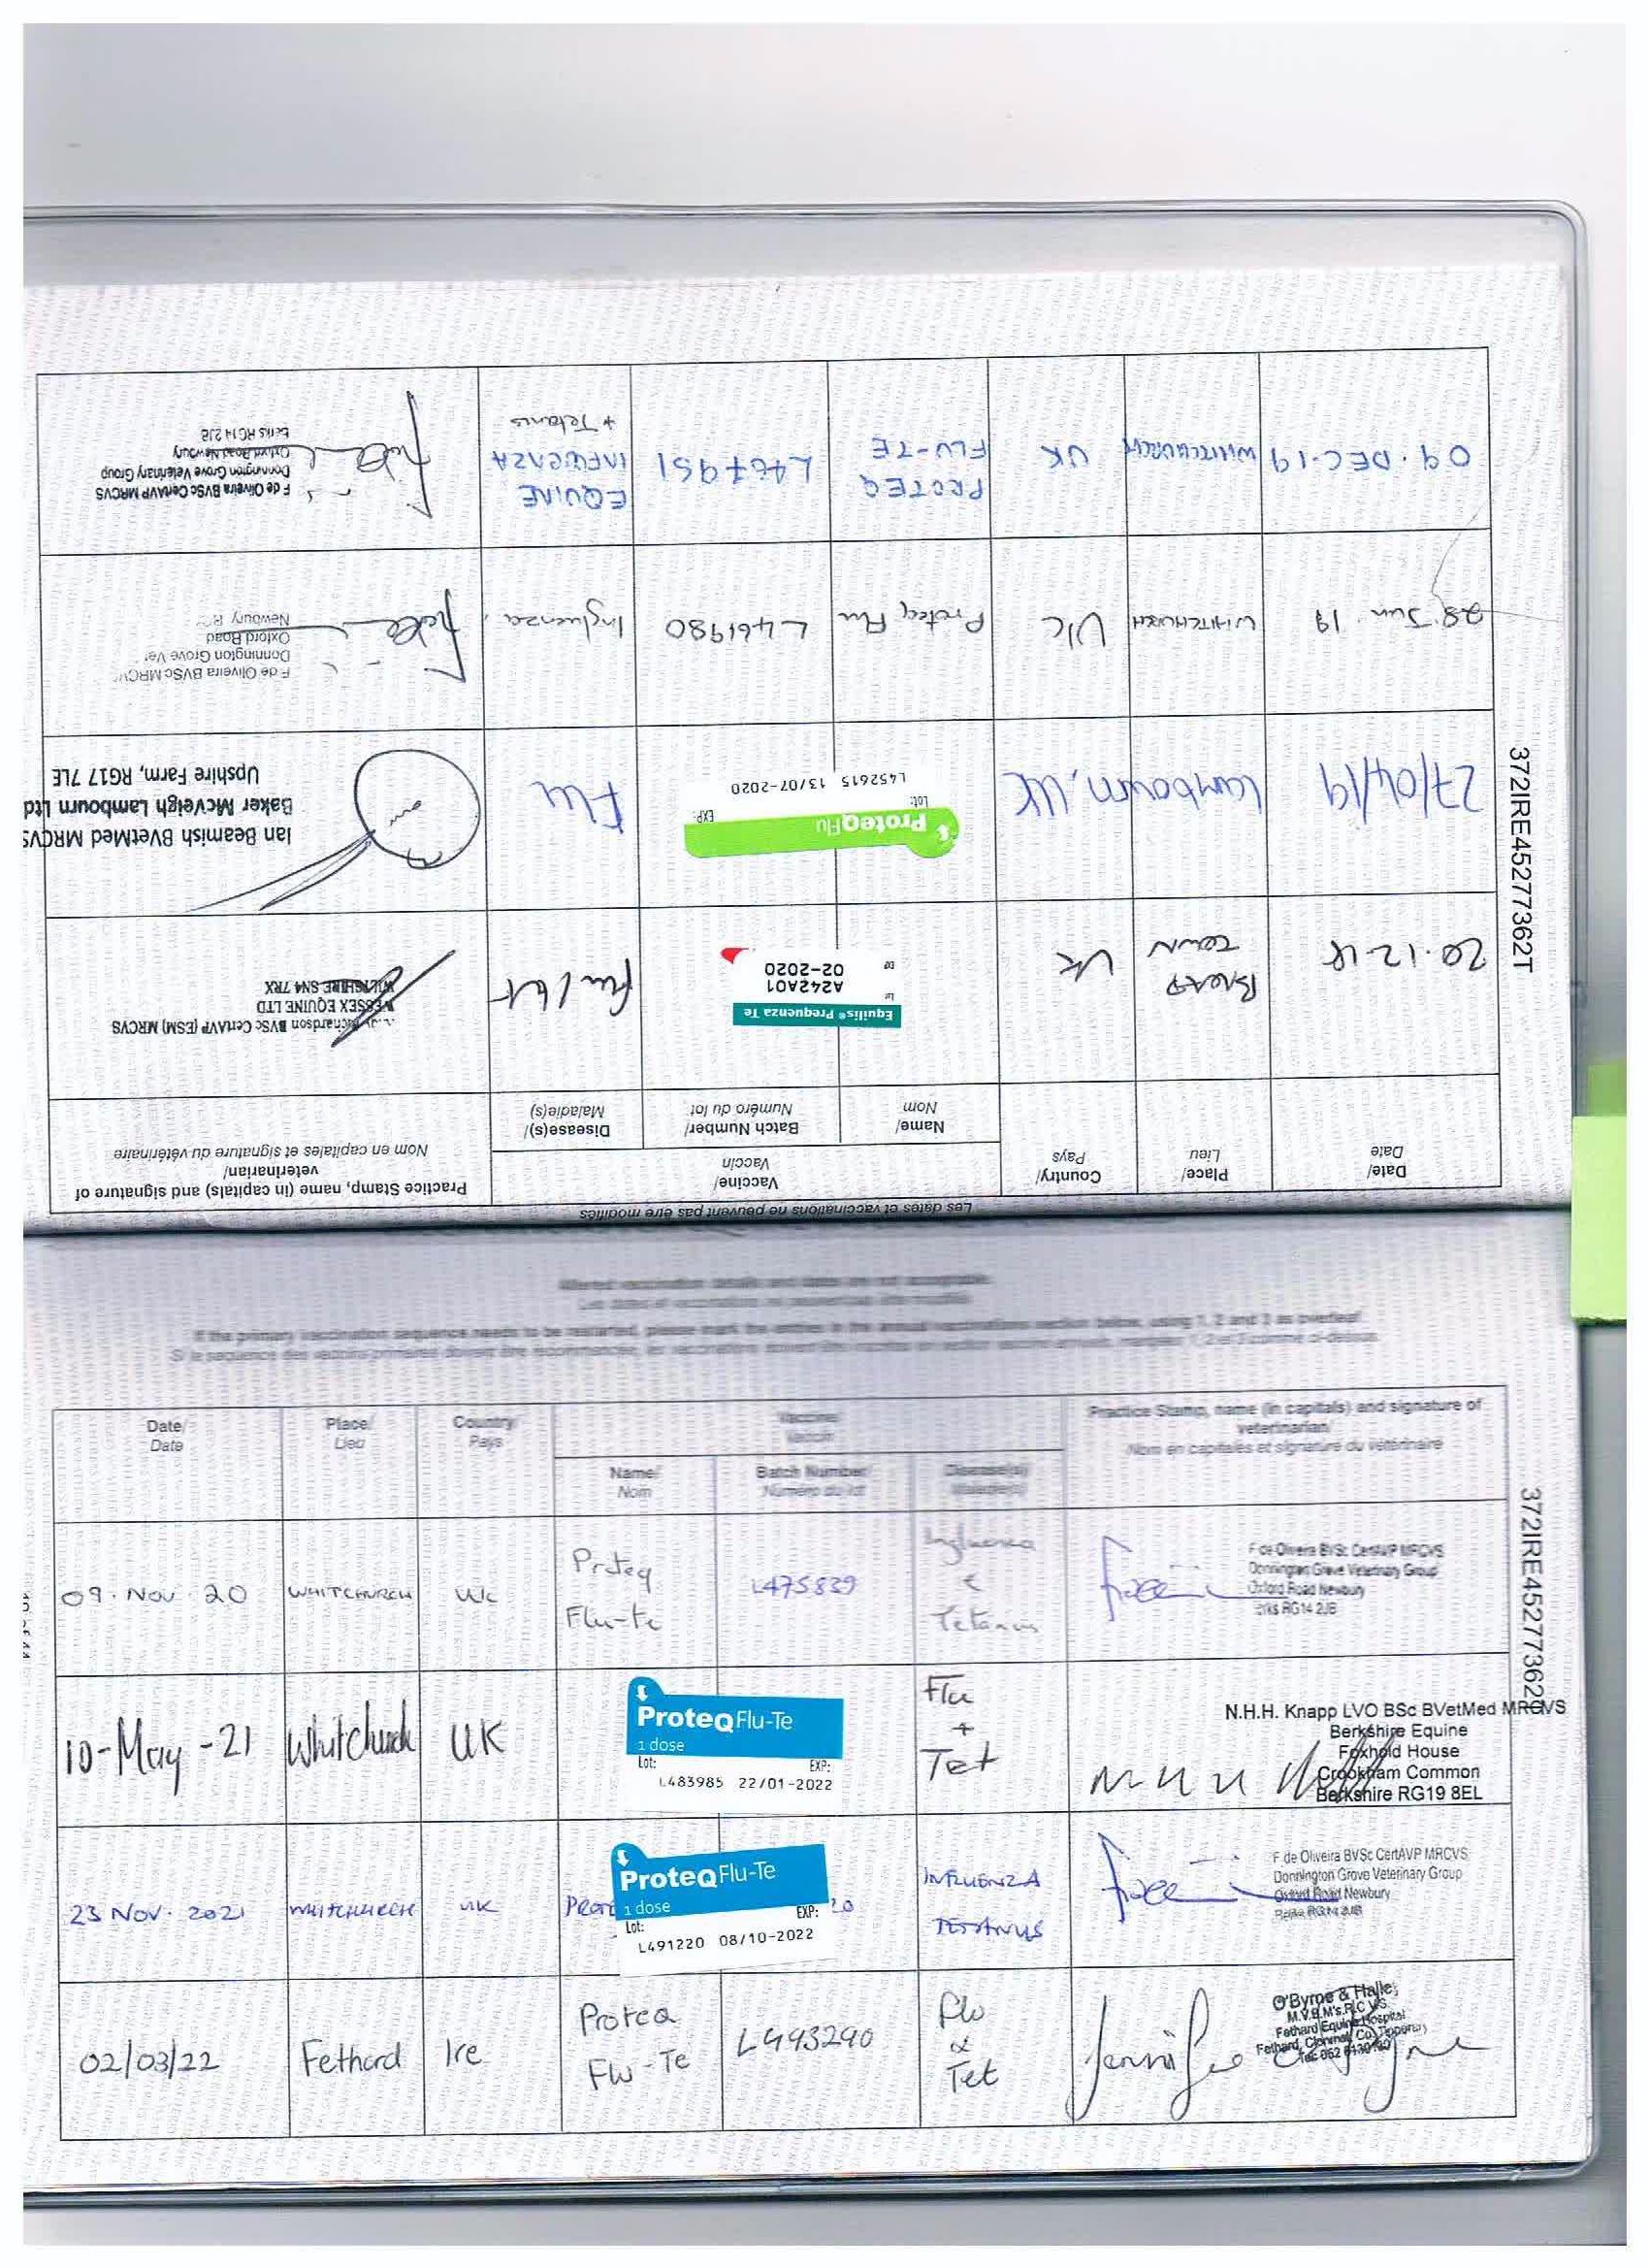 Les dates et vaccinations ne peuvent pas être modifiés
Date/
Date
Place/
Lieu
Country/
Pays
Vaccine/
Vaccin
Name/
Nom
Batch Number/
Numéro du lot
Disease(s)/
Maladie(s)
Practice Stamp, name (in capitals) and signature of
veterinarian/
Nom en capitales et signature du vétérinaire
20.12.18
BROAD
TOWN
UK
Equilis® Prequenza Te
Lot
A242A01
EXP
02-2020
Richardson BVSc CertAVP (ESM) MRCVS
WESSEX EQUINE LTD
WILTSHIRE SN4 7RX
27/04/19
Lambourn, UK
ProteqFlu
Lot: EXP:
L452615 13/07-2020
Flu
Ian Beamish BVetMed MRCVS
Baker Mcveigh Lambourn Ltd
Upshire Farm, RG17 7LE
28.Jun.19
WHITCHURCH
UK
Proteq Flu
L461980
Influenza
F de Oliveira BVSc MRCV
Donnington Grove Ve
Oxford Road
Newbury R
09.DEC.19
WHITCHURCH
UK
PROTEQ
FLU-TE
L467951
EQUINE
INFLUENZA
+ Tetanus
F de Oliveira BVSc CertAVP MRCVS
Donnington Grove Veterinary Group
Oxford Road Newbury
Berks RG14 2JB
372IRE45277362T
Altered vaccination details and dates are not acceptable
Les dates et vaccinations ne peuvent pas être modifiés
If the primary vaccination sequence needs to be restarted, please mark the entries in the annual vaccinations section below, using 1, 2 and 3 as overleaf
Date/
Date
Place/
Lieu
Country/
Pays
Vaccine/
Vaccin
Name/
Nom
Batch Number/
Numéro du lot
Disease(s)/
Maladie(s)
Practice Stamp, name (in capitals) and signature of
veterinarian/
Nom en capitales et signature du vétérinaire
09.Nov.20
WHITCHURCH
UK
Proteq
Flu-te
L475839
Influenza
&
Tetanus
F de Oliveira BVSc CertAVP MRCVS
Donnington Grove Veterinary Group
Oxford Road Newbury
Berks RG14 2JB
10-May-21
Whitchurch
UK
ProteqFlu-Te
1 dose
Lot: EXP:
L483985 22/01-2022
Flu
+
Tet
N.H.H. Knapp LVO BSc BVetMed MRCVS
Berkshire Equine
Foxhold House
Crookham Common
Berkshire RG19 8EL
23 Nov. 2021
WHITCHURCH
UK
PROT
20
ProteqFlu-Te
1 dose
Lot: EXP:
L491220 08/10-2022
INFLUENZA
TETANUS
F de Oliveira BVSc CertAVP MRCVS
Donnington Grove Veterinary Group
Oxford Road Newbury
Berks RG14 2JB
02/03/22
Fethard
Ire
Proteq
Flu-Te
L493290
Flu
&
Tet
O'Byrne & Halley
M.V.B.M's.R.C.V.S.
Fethard Equine Hospital
Fethard, Clonmel, Co. Tipperary
372IRE45277362T